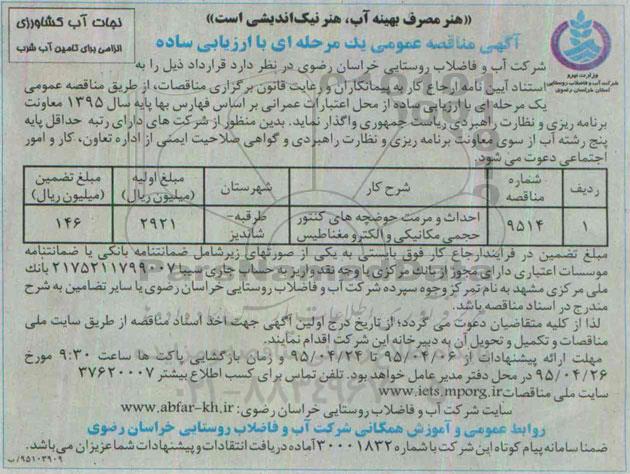 «هنر مصرف بهینه آب، هنر نیک‌اندیشی است»
نجات آب کشاورزی
الزامی برای تامین آب شرب
آگهی مناقصه عمومی یک مرحله ای با ارزیابی ساده
وزارت نیرو
شرکت آب و فاضلاب روستایی
استان خراسان رضوی
شرکت آب و فاضلاب روستایی خراسان رضوی در نظر دارد قرارداد ذیل را به
استناد آیین نامه ارجاع کار به پیمانکاران و رعایت قانون برگزاری مناقصات، از طریق مناقصه عمومی
یک مرحله ای با ارزیابی ساده از محل اعتبارات عمرانی بر اساس فهارس بها پایه سال ۱۳۹۵ معاونت
برنامه ریزی و نظارت راهبردی ریاست جمهوری واگذار نماید. بدین منظور از شرکت های دارای رتبه حداقل پایه
پنج رشته آب از سوی معاونت برنامه ریزی و نظارت راهبردی و گواهی صلاحیت ایمنی از اداره تعاون، کار و امور
اجتماعی دعوت می شود.
ردیف شماره مناقصه شرح کار شهرستان مبلغ اولیه (میلیون ریال) مبلغ تضمین (میلیون ریال)
۱ ۹۵۱۴ احداث و مرمت حوضچه های کنتور حجمی مکانیکی و الکترو مغناطیس طرقبه- شاندیز ۲۹۲۱ ۱۴۶
مبلغ تضمین در فرایندارجاع کار فوق بایستی به یکی از صورتهای زیرشامل ضمانتنامه بانکی یا ضمانتنامه
موسسات اعتباری دارای مجوز از بانک مرکزی یا وجه نقد واریز به حساب جاری سیبا ۲۱۷۵۲۱۱۷۹۹۰۰۷ بانک
ملی مرکزی مشهد به نام تمرکز وجوه سپرده شرکت آب و فاضلاب روستایی خراسان رضوی یا سایر تضامین به شرح
مندرج در اسناد مناقصه باشد.
لذا از کلیه متقاضیان دعوت می گردد؛ از تاریخ درج اولین آگهی جهت اخذ اسناد مناقصه از طریق سایت ملی
مناقصات و تکمیل و تحویل آن به دبیرخانه این شرکت اقدام نمایند.
مهلت ارائه پیشنهادات از ۹۵/۰۴/۰۶ تا ۹۵/۰۴/۲۴ و زمان بازگشایی پاکت ها ساعت ۹:۳۰ مورخ
۹۵/۰۴/۲۶ در محل دفتر مدیر عامل خواهد بود. تلفن تماس برای کسب اطلاع بیشتر ۳۷۶۲۰۰۰۷
سایت ملی مناقصات www.iets.mporg.ir
سایت شرکت آب و فاضلاب روستایی خراسان رضوی: www.abfar-kh.ir
روابط عمومی و آموزش همگانی شرکت آب و فاضلاب روستایی خراسان رضوی
ضمنا سامانه پیام کوتاه این شرکت با شماره ۳۰۰۰۱۸۳۲ آماده دریافت انتقادات و پیشنهادات شما عزیزان می‌باشد.
۹۵۱۰۳۹۰۹/ب